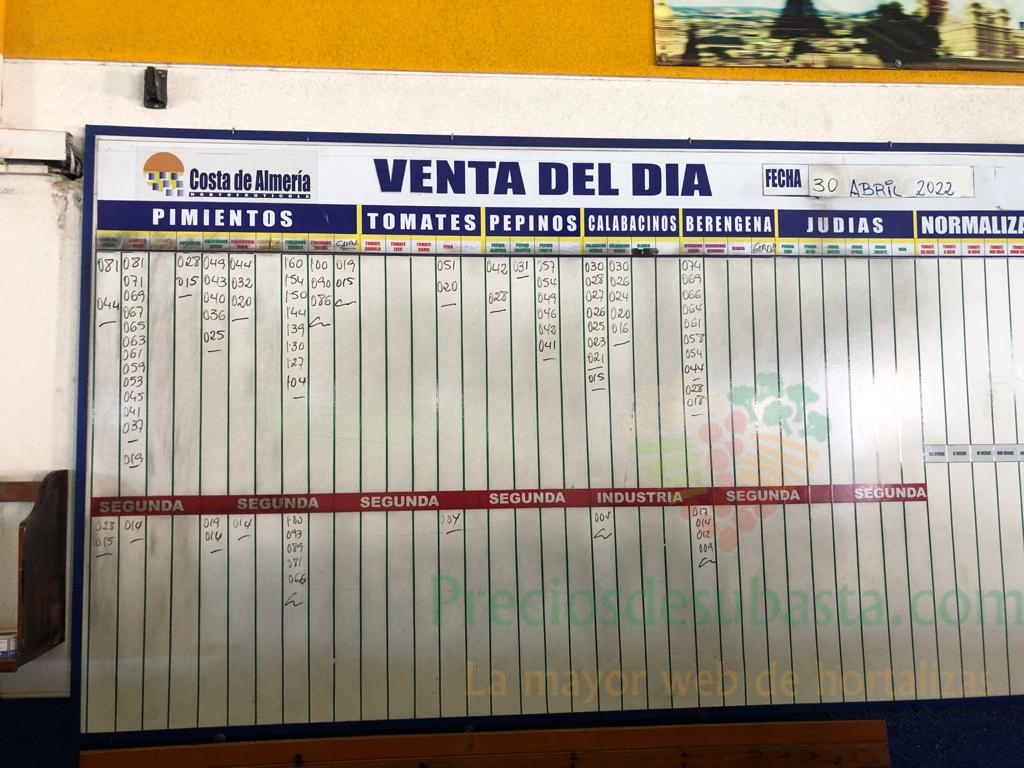 Costa de Almería
VENTA DEL DIA
FECHA 30 ABRIL 2022
PIMIENTOS TOMATES PEPINOS CALABACINOS BERENGENA JUDIAS NORMALIZA
081 081 028 049 044 160 100 019 051 042 031 057 030 030 074
071 015 043 032 154 090 015 020 054 028 026 069
044 069 040 020 150 086 028 049 027 024 066
067 036 144 046 026 020 064
065 025 139 042 025 016 061
063 130 041 023 058
061 127 021 054
059 104 015 044
053 028
045 018
041
037
019
SEGUNDA SEGUNDA SEGUNDA SEGUNDA INDUSTRIA SEGUNDA SEGUNDA
028 014 019 014 100 004 004 017
015 014 093 014
089 012
081 009
066
Preciosdesubasta.com
La mayor web de hortalizas